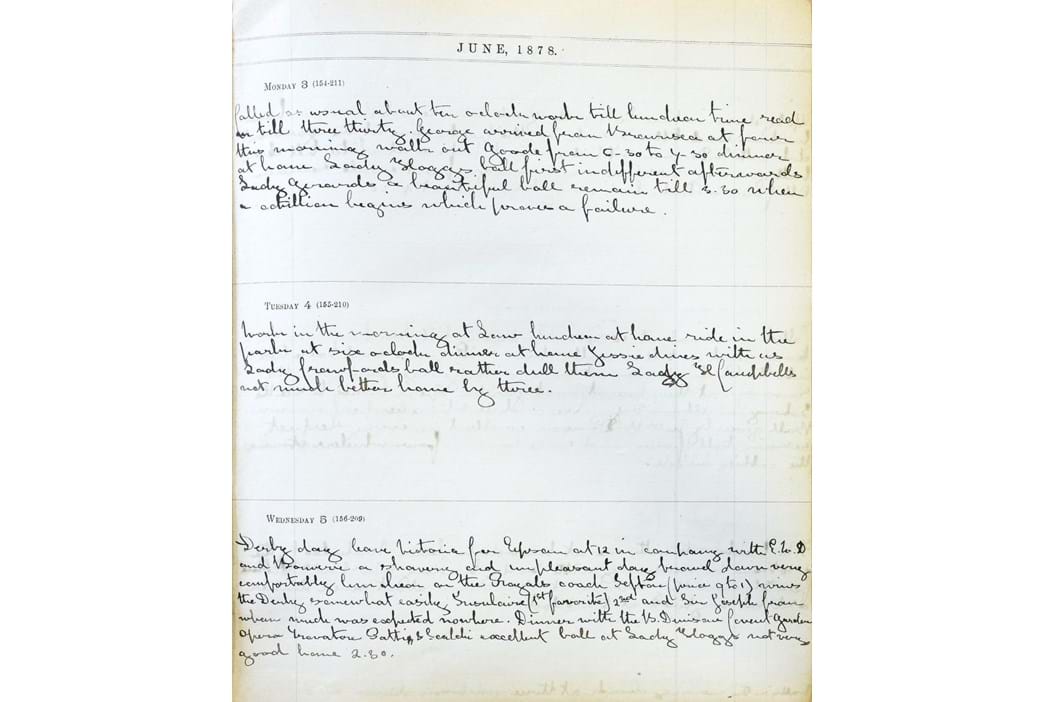 JUNE, 1878.
MONDAY 3 (154-211)
Called as usual about ten o clock work till luncheon time read
till three thirty. George arrived from at four
this morning walk out from 6-30 to 7-30 dinner
at home Lady ball first indifferent afterwards
Lady Gerards a beautiful ball remain till 3.30 when
a cotillion begins which proves a failure.
TUESDAY 4 (155-210)
Work in the morning at Law luncheon at home ride in the
park at six o clock dinner at home Jessie dines with us
Lady Crawfords ball rather dull then Lady Campbells
not much better home by three.
WEDNESDAY 5 (156-209)
Derby day leave Victoria for Epsom at 12 in company with E.W.D
and a showery and unpleasant day down very
comfortably luncheon on the coach Sefton (price 9 to 1) wins
the Derby somewhat easily Insulaire (1st favorite) 2nd and Sir Joseph from
whom much was expected nowhere. Dinner with the Covent Garden
Opera Trovatore Patti & Scalchi excellent ball at Lady not very
good home 2.30.